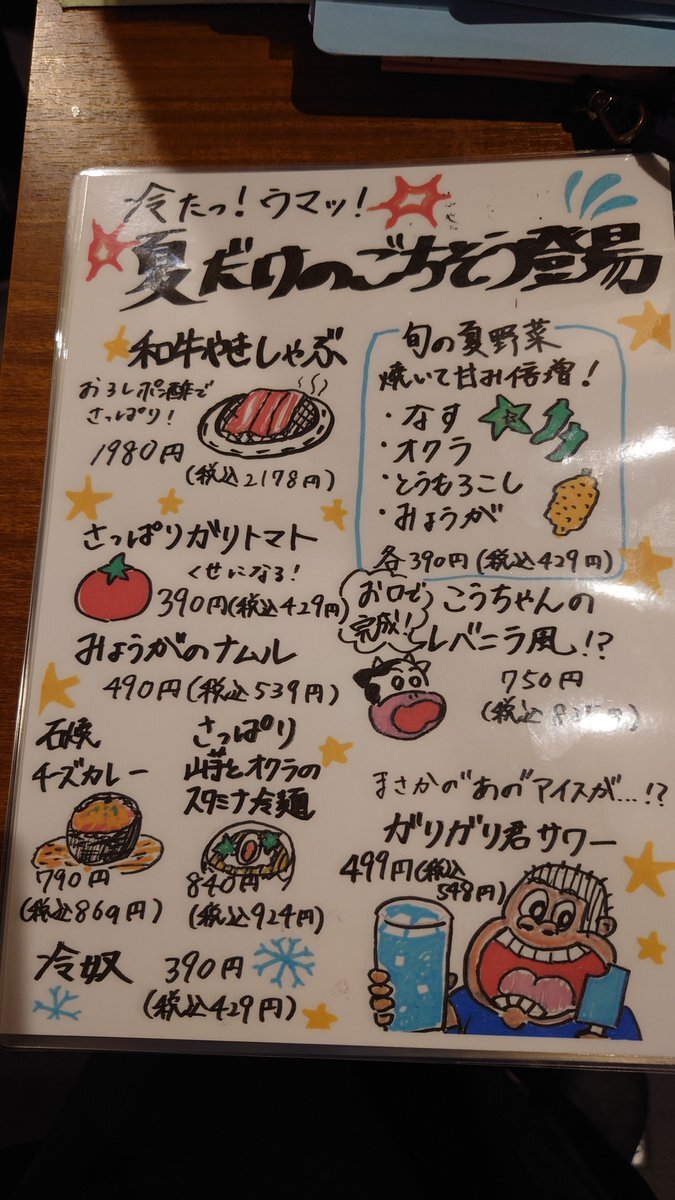 冷たっ！ウマッ！
夏だけのごちそう登場
和牛やきしゃぶ
おろしポン酢で
さっぱり！
1980円
(税込2178円)
旬の夏野菜
焼いて甘み倍増！
・なす
・オクラ
・とうもろこし
・みょうが
各390円(税込429円)
さっぱりガリトマト
くせになる！
390円(税込429円)
みょうがのナムル
490円(税込539円)
お口で
完成！
こうちゃんの
レバニラ風！？
750円
(税込
石焼
チーズカレー
790円
(税込869円)
さっぱり
山芋とオクラの
スタミナ冷麺
840円
(税込924円)
冷奴 390円
(税込429円)
まさかの"あの"アイスが…！？
ガリガリ君サワー
499円(税込
548円)